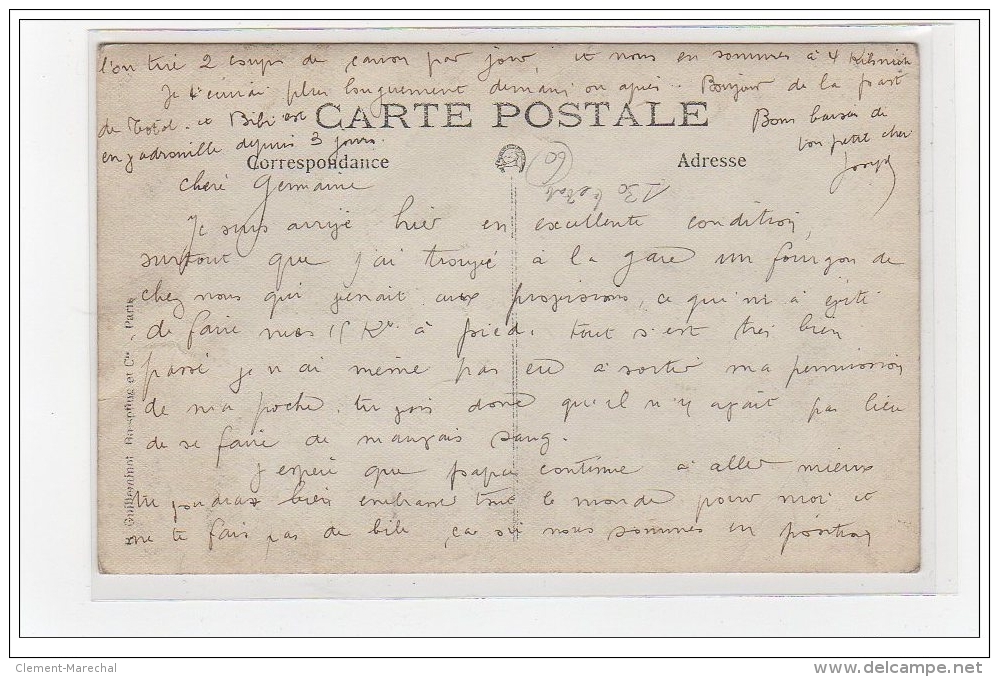 l'on tire 2 coups de canon par jour, et nous en sommes à 4 Kilomèt
Je t'écrirai plus longuement demain ou après. Bonjour de la part
de Totol. et Bibi est
CARTE POSTALE
Bons baisers de
en vadrouille depuis 3 jours.
ton petit cher
Joseph
Correspondance
Adresse
60
130
cheré Germaine
Je suis arrivé hier en excellente condition,
surtout que j'ai trouvé à la gare un fourgon de
chez nous qui venait aux provisions, ce qui m'a évité
de faire mes 15 Kr. à pied. tout s'est très bien
passé je n'ai même pas eu à sortir ma permission
de ma poche. tu vois donc qu'il n'y avait pas lieu
de se faire de mauvais sang.
J'espère que papa continue à aller mieux
tu voudras bien embrasser tout le monde pour moi et
ne te fais pas de bile, car où nous sommes en position
Guilleminot, Boespflug et Cie - Paris
Clement-Marechal
www.delcampe.net